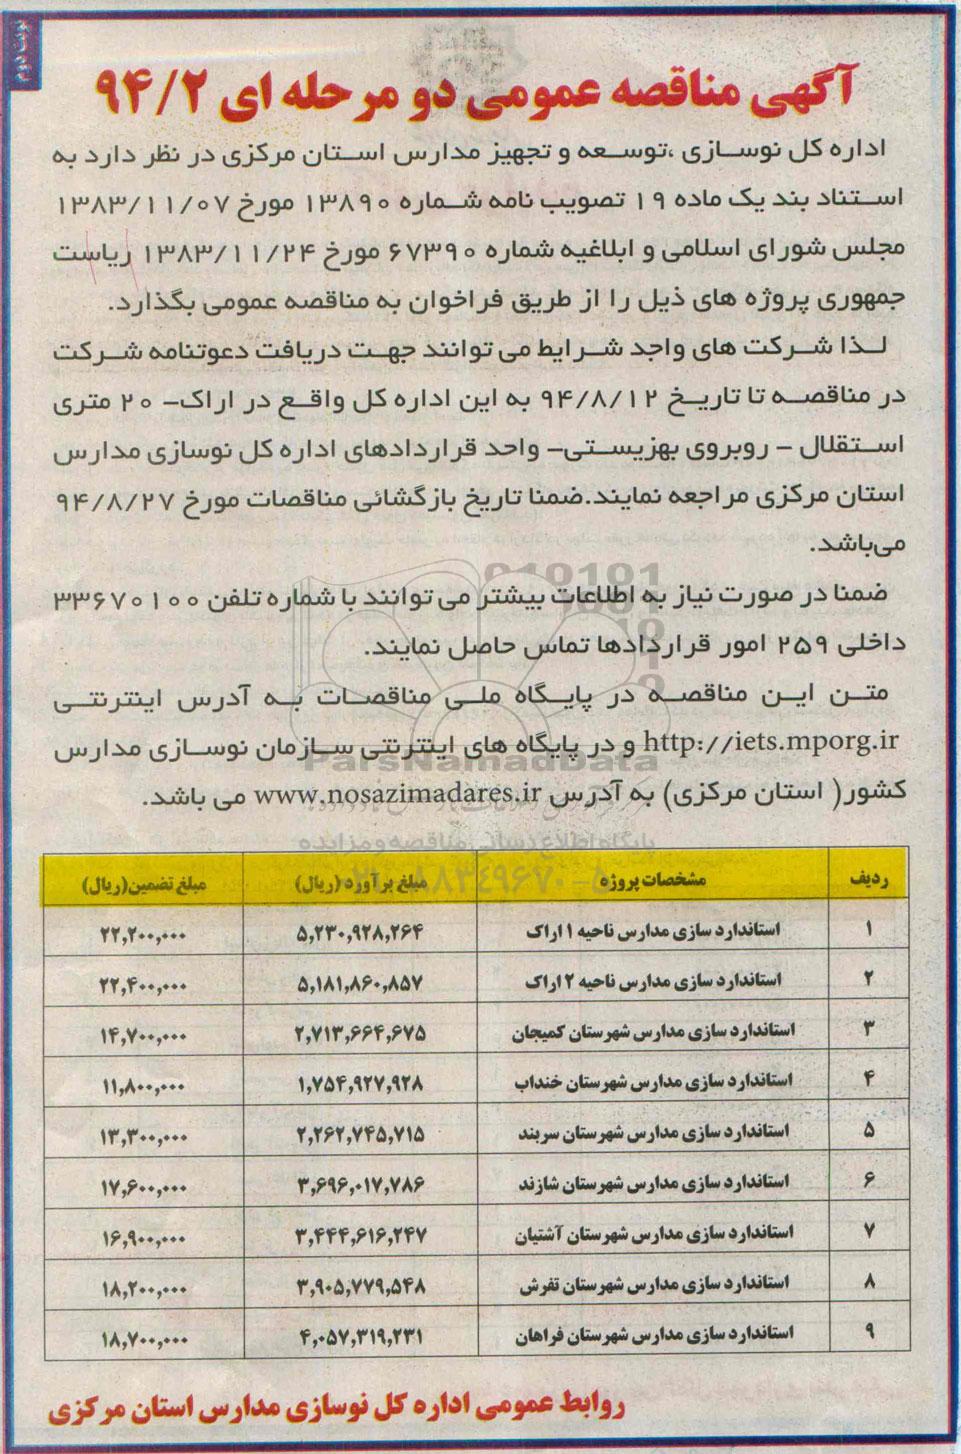 نوبت دوم
آگهی مناقصه عمومی دو مرحله ای ۹۴/۲
اداره کل نوسازی ،توسعه و تجهیز مدارس استان مرکزی در نظر دارد به
استناد بند یک ماده ۱۹ تصویب نامه شماره ۱۳۸۹۰ مورخ ۱۳۸۳/۱۱/۰۷
مجلس شورای اسلامی و ابلاغیه شماره ۶۷۳۹۰ مورخ ۱۳۸۳/۱۱/۲۴ ریاست
جمهوری پروژه های ذیل را از طریق فراخوان به مناقصه عمومی بگذارد.
لذا شرکت های واجد شرایط می توانند جهت دریافت دعوتنامه شرکت
در مناقصه تا تاریخ ۹۴/۸/۱۲ به این اداره کل واقع در اراک- ۲۰ متری
استقلال - روبروی بهزیستی- واحد قراردادهای اداره کل نوسازی مدارس
استان مرکزی مراجعه نمایند.ضمنا تاریخ بازگشائی مناقصات مورخ ۹۴/۸/۲۷
می‌باشد.
ضمنا در صورت نیاز به اطلاعات بیشتر می توانند با شماره تلفن ۳۳۶۷۰۱۰۰
داخلی ۲۵۹ امور قراردادها تماس حاصل نمایند.
متن این مناقصه در پایگاه ملی مناقصات به آدرس اینترنتی
http://iets.mporg.ir و در پایگاه های اینترنتی سازمان نوسازی مدارس
ParsNamadData
کشور( استان مرکزی) به آدرس www.nosazimadares.ir می باشد.
پایگاه اطلاع رسانی مناقصه و مزایده
۰۲۱-۸۸۳۴۹۶۷۰-۵
ردیف مشخصات پروژه مبلغ برآورد (ریال) مبلغ تضمین(ریال)
۱ استاندارد سازی مدارس ناحیه ۱ اراک ۵,۲۳۰,۹۲۸,۲۶۴ ۲۲,۲۰۰,۰۰۰
۲ استاندارد سازی مدارس ناحیه ۲ اراک ۵,۱۸۱,۸۶۰,۸۵۷ ۲۲,۴۰۰,۰۰۰
۳ استاندارد سازی مدارس شهرستان کمیجان ۲,۷۱۳,۶۶۴,۶۷۵ ۱۴,۷۰۰,۰۰۰
۴ استاندارد سازی مدارس شهرستان خنداب ۱,۷۵۴,۹۲۷,۹۲۸ ۱۱,۸۰۰,۰۰۰
۵ استاندارد سازی مدارس شهرستان سربند ۲,۲۶۲,۷۴۵,۷۱۵ ۱۳,۳۰۰,۰۰۰
۶ استاندارد سازی مدارس شهرستان شازند ۳,۶۹۶,۰۱۷,۷۸۶ ۱۷,۶۰۰,۰۰۰
۷ استاندارد سازی مدارس شهرستان آشتیان ۳,۴۴۴,۶۱۶,۲۴۷ ۱۶,۹۰۰,۰۰۰
۸ استاندارد سازی مدارس شهرستان تفرش ۳,۹۰۵,۷۷۹,۵۴۸ ۱۸,۲۰۰,۰۰۰
۹ استاندارد سازی مدارس شهرستان فراهان ۴,۰۵۷,۳۱۹,۲۳۱ ۱۸,۷۰۰,۰۰۰
روابط عمومی اداره کل نوسازی مدارس استان مرکزی